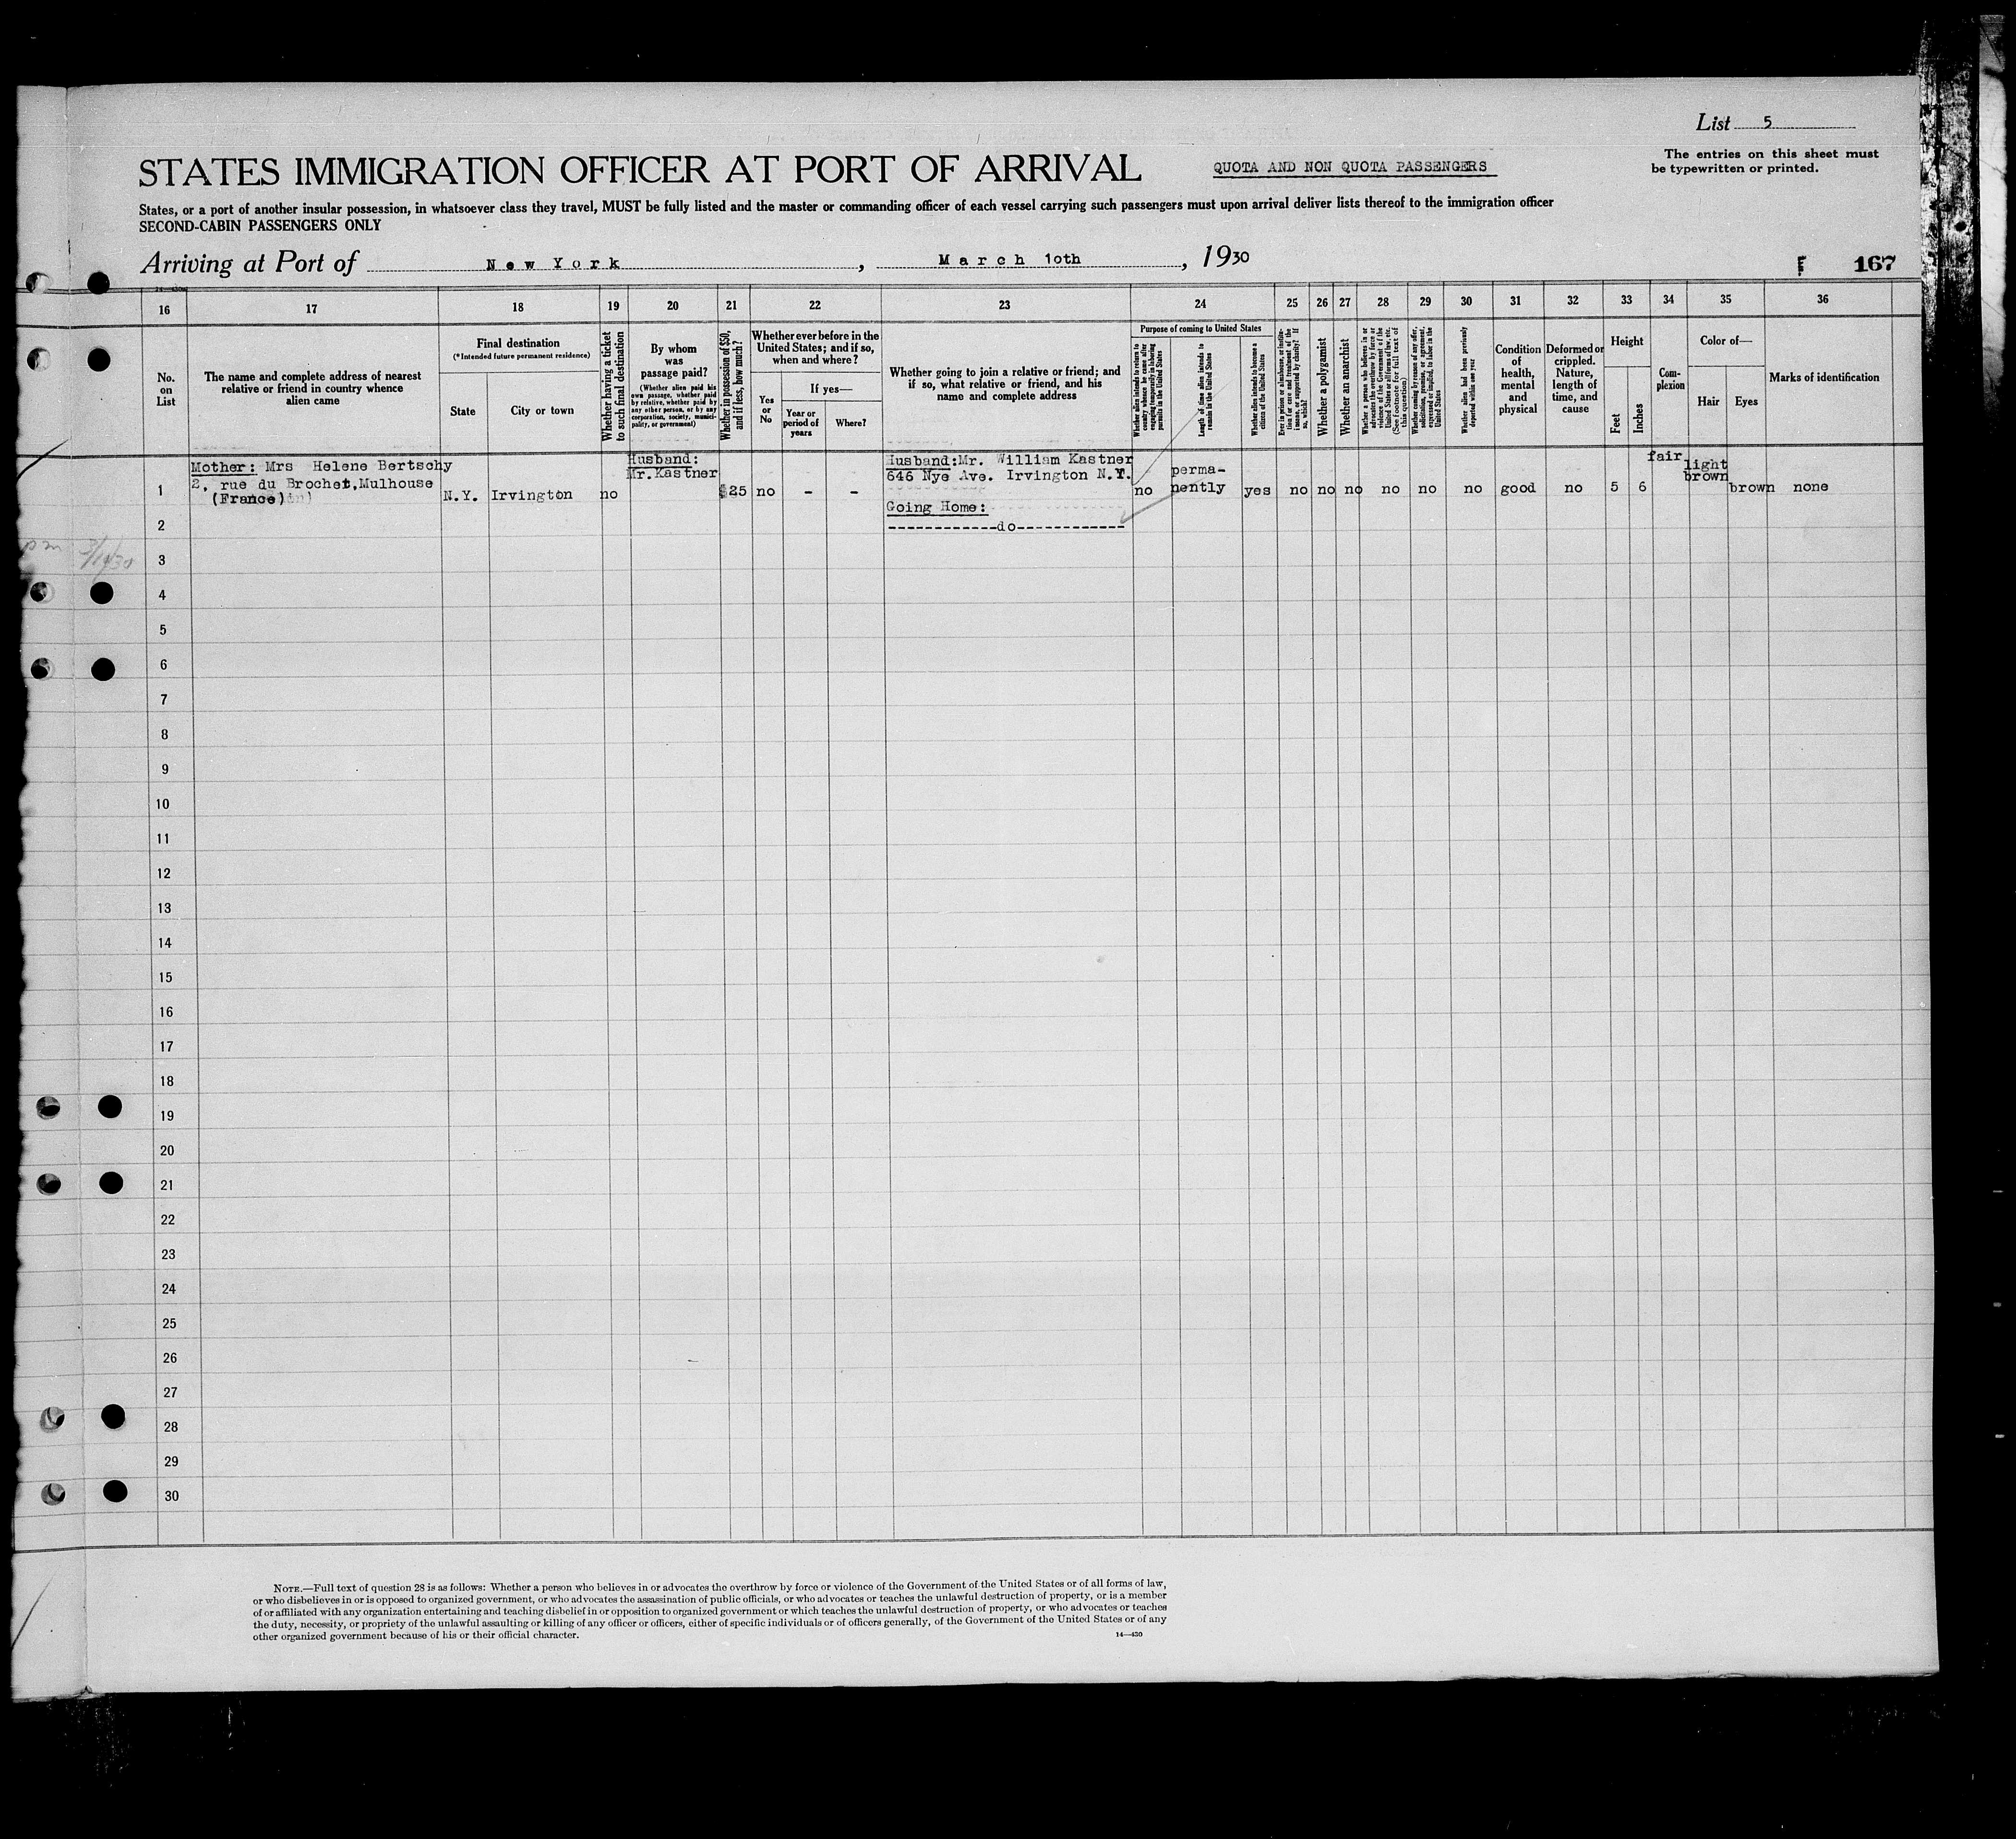 List 5
The entries on this sheet must
be typewritten or printed.
STATES IMMIGRATION OFFICER AT PORT OF ARRIVAL
QUOTA AND NON QUOTA PASSENGERS
States, or a port of another insular possession, in whatsoever class they travel, MUST be fully listed and the master or commanding officer of each vessel carrying such passengers must upon arrival deliver lists thereof to the immigration officer
SECOND-CABIN PASSENGERS ONLY
Arriving at Port of New York, March 10th, 1930
167
16 17 18 19 20 21 22 23 24 25 26 27 28 29 30 31 32 33 34 35 36
No.
on
List
The name and complete address of nearest
relative or friend in country whence
alien came
Final destination
(*Intended future permanent residence)
State
City or town
Whether having a ticket
to such final destination
By whom
was
passage paid?
(Whether alien paid his
own passage, whether paid
by relative, whether paid by
any other person, or by any
corporation, society, munici-
pality, or government)
Whether in possession of $50,
and if less, how much?
Whether ever before in the
United States; and if so,
when and where?
Yes
or
No
If yes—
Year or
period of
years
Where?
Whether going to join a relative or friend; and
if so, what relative or friend, and his
name and complete address
Purpose of coming to United States
Whether alien intends to return to
country whence he came after
engaging temporarily in laboring
pursuits in the United States
Length of time alien intends to
remain in the United States
Whether alien intends to become a
citizen of the United States
Ever in prison or almshouse, or institu-
tion for care and treatment of the
insane, or supported by charity? If
so, which?
Whether a polygamist
Whether an anarchist
Whether a person who believes in or
advocates the overthrow by force or
violence of the Government of the
United States or all forms of law, etc.
(See footnote for full text of
this question)
Whether coming by reason of any offer,
solicitation, promise, or agreement,
expressed or implied, to labor in the
United States
Whether alien had been previously
deported within one year
Condition
of
health,
mental
and
physical
Deformed or
crippled.
Nature,
length of
time, and
cause
Height
Feet
Inches
Com-
plexion
Color of—
Hair
Eyes
Marks of identification
1
Mother: Mrs Helene Bertschy
2, rue du Brochet, Mulhouse
(France)
N.Y.
Irvington
no
Husband:
Mr. Kastner
$25
no
-
-
Husband: Mr. William Kastner
646 Nye Ave. Irvington N.Y.
no
perma-
nently
yes
no
no
no
no
no
no
good
no
5
6
fair
light
brown
brown
none
Going Home:
2
------------do------------
3
3/10/30
4
5
6
7
8
9
10
11
12
13
14
15
16
17
18
19
20
21
22
23
24
25
26
27
28
29
30
NOTE.—Full text of question 28 is as follows: Whether a person who believes in or advocates the overthrow by force or violence of the Government of the United States or of all forms of law,
or who disbelieves in or is opposed to organized government, or who advocates the assassination of public officials, or who advocates or teaches the unlawful destruction of property, or is a member
of or affiliated with any organization entertaining and teaching disbelief in or opposition to organized government or which teaches the unlawful destruction of property, or who advocates or teaches
the duty, necessity, or propriety of the unlawful assaulting or killing of any officer or officers, either of specific individuals or of officers generally, of the Government of the United States or of any
other organized government because of his or their official character.
14—430